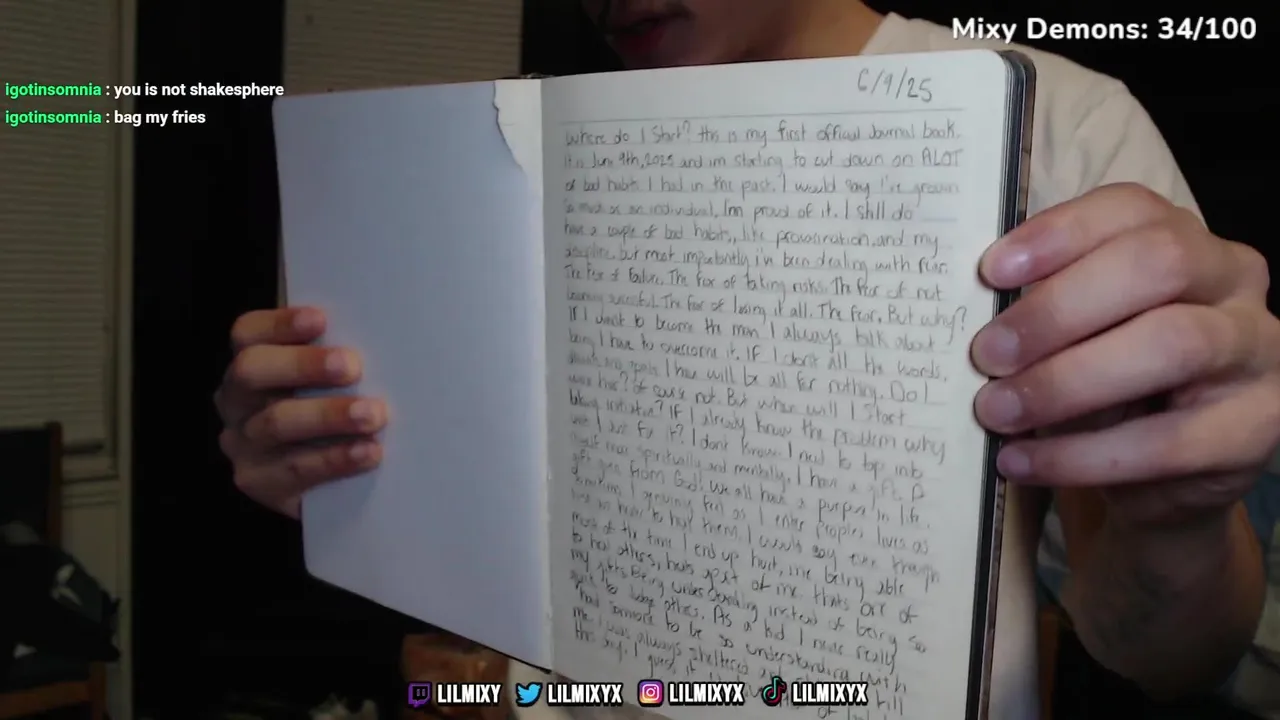 Mixy Demons: 34/100
igotinsomnia : you is not shakesphere
igotinsomnia : bag my fries
6/9/25
Where do I start? this is my first official Journal book.
It is June 9th, 2025 and im starting to cut down on ALOT
of bad habits I had in the past. I would say I've grown
so much as an individual, I'm proud of it. I still do
have a couple of bad habits, like procrastination, and my
discipline, but most importantly i'm been dealing with fear.
The fear of failure. The fear of taking risks. The fear of not
becoming successful. The fear of losing it all. The fear. But why?
If I want to become the man I always talk about
being I have to overcome it. If I don't all the words,
I have will be all for nothing. Do I
want that? Of course not. But when will I start
taking initiative? If I already know the problem why
can't I just fix it? I don't know. I need to tap into
myself more spiritually and mentally. I have a gift. A
gift given from God. We all have a purpose in life.
I genuinely feel as I enter peoples lives as
to help them. I would say even though
most of the time I end up hurt, me being able
to heal others, heals apart of me. thats one of
my gifts. Being understanding instead of being so
quick to judge others. As a kid I never really
had someone to be so understanding with
me. I was always sheltered
this day. I guess it
LILMIXY LILMIXYX LILMIXYX LILMIXYX